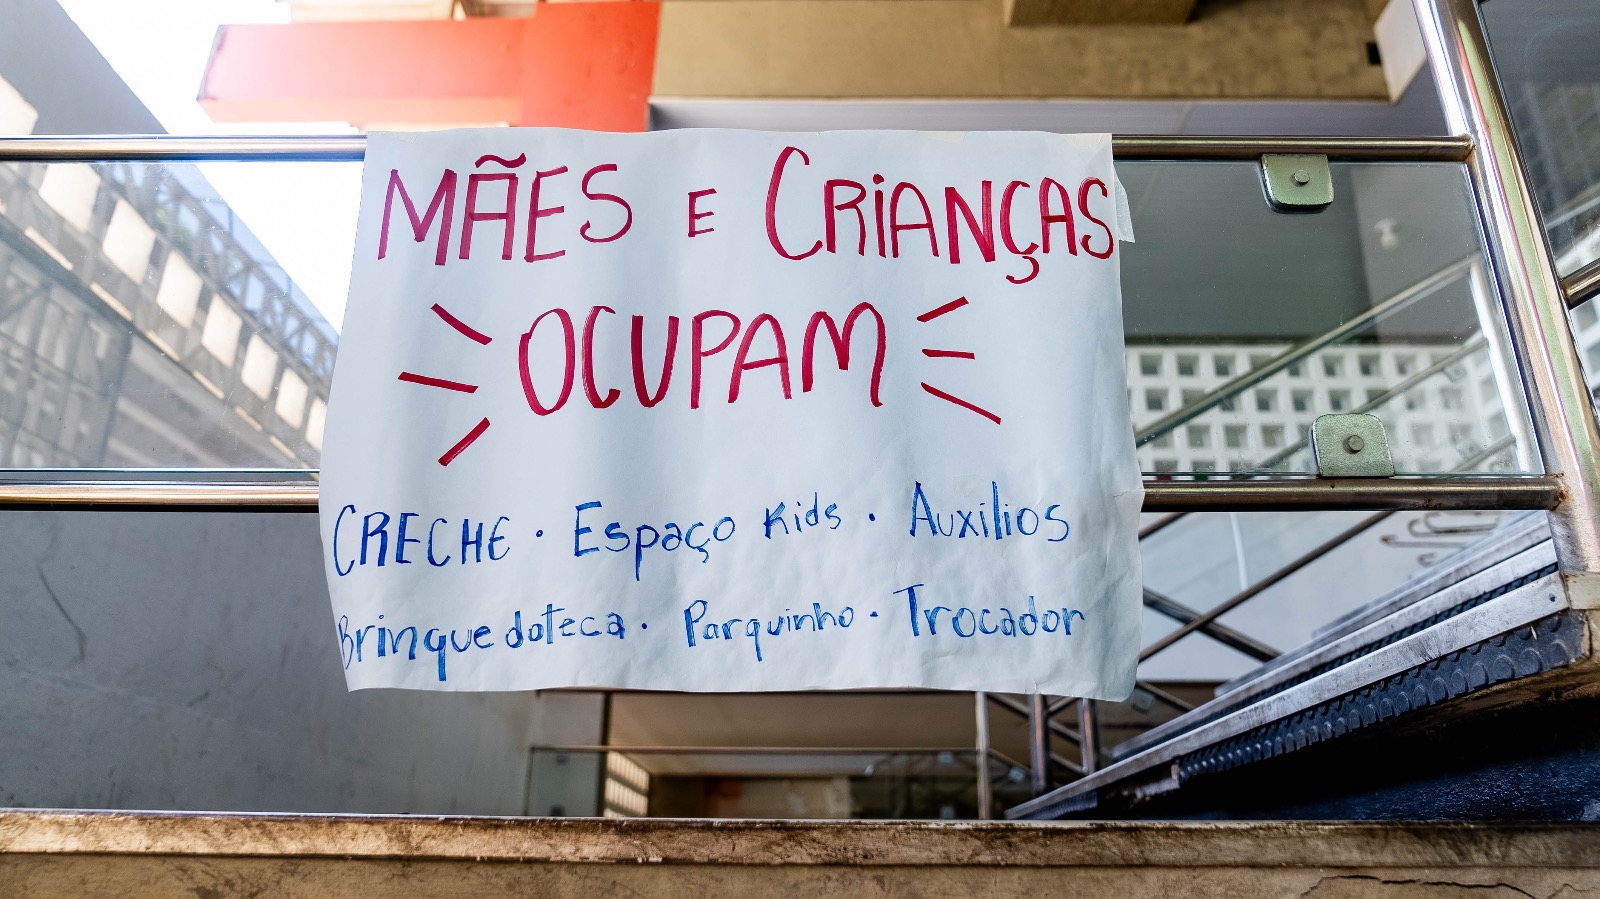 MÃES E CRIANÇAS
OCUPAM
CRECHE · Espaço Kids · Auxílios
Brinquedoteca · Parquinho · Trocador